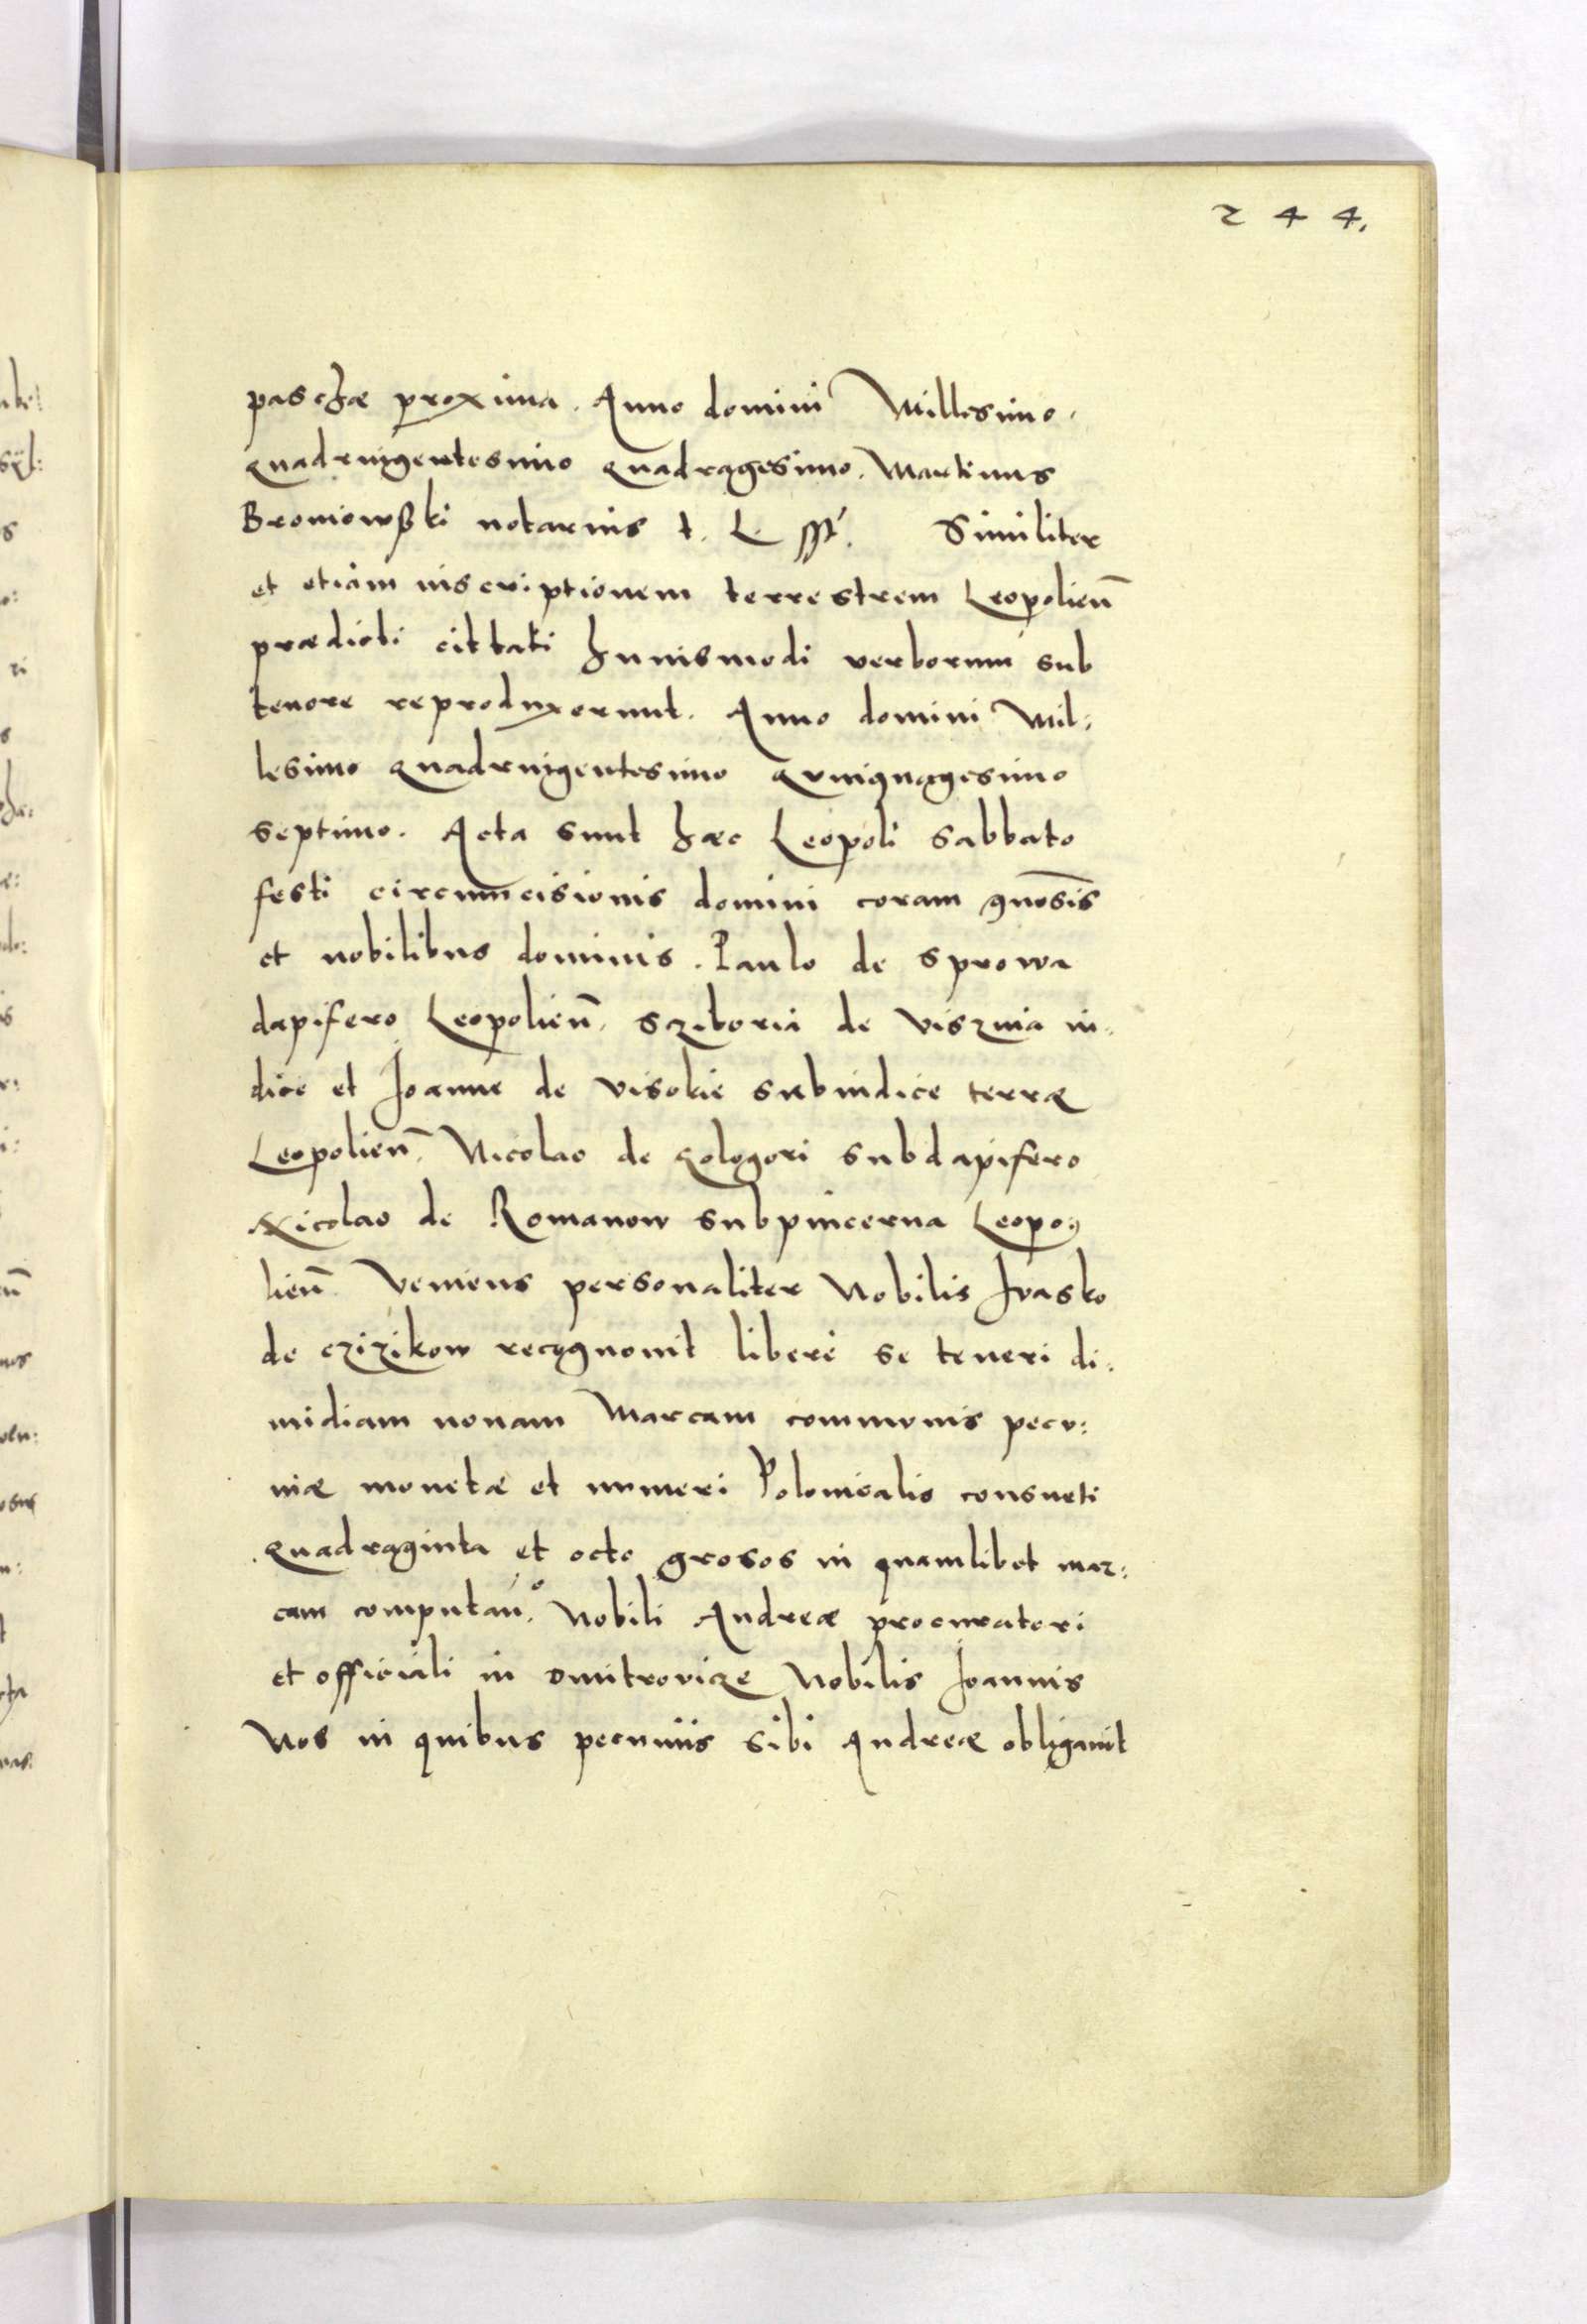 244.
paschæ proxima. Anno domini Millesimo.
quadringentesimo quadragesimo. Martinus
Broniowßki notarius t. L. sst. Similiter
et etiam inscriptionem terrestrem Leopolien̄
prædicti cittati huiusmodi verborum sub
tenore reproduxerunt. Anno domini Mil:
lesimo quadringentesimo quinquagesimo
septimo. Acta sunt hæc Leopoli sabbato
festi circumcisionis domini coram gnosis
et nobilibus dominis. Paulo de Sprowa
dapifero Leopolien̄. Scziboria de Visznia iu:
dice et Joanne de Visokie subiudice terræ
Leopolien̄. Nicolao de Gologori subdapifero
Nicolao de Romanow subpincerna Leopo:
lien̄. Veniens personaliter Nobilis Ivasko
de Czizikow recognouit liberè se teneri di:
midiam nonam Marcam communis pecu:
niæ monetæ et numeri Polonicalis consueti
Quadraginta et octo grosos in quamlibet mar:
cam computan̄. Nobili Andreæ procuratori
et officiali in Dmitrovicze Nobilis Joannis
Nos in quibus pecuniis sibi Andreæ obligauit